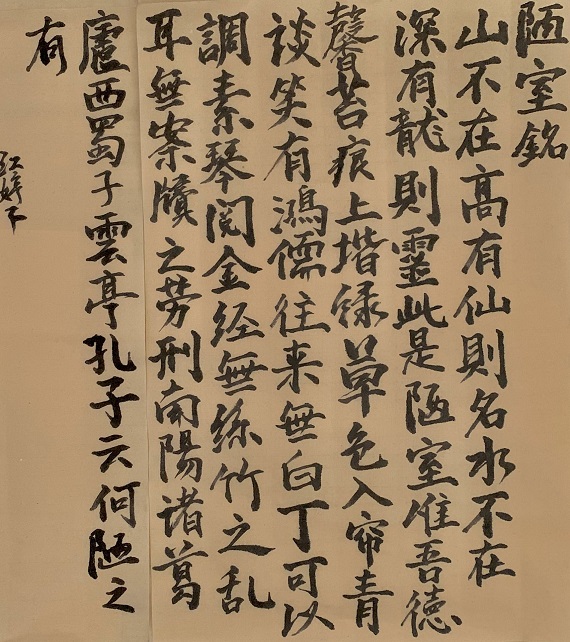 陋室銘
山不在高有仙則名水不在
深有龍則靈此是陋室惟吾德
馨苔痕上堦緑草色入帘青
談笑有鴻儒往来無白丁可以
調素琴閲金経無絲竹之乱
耳無案牘之劳刑南陽诸葛
廬西蜀子雲亭孔子云何陋之
有